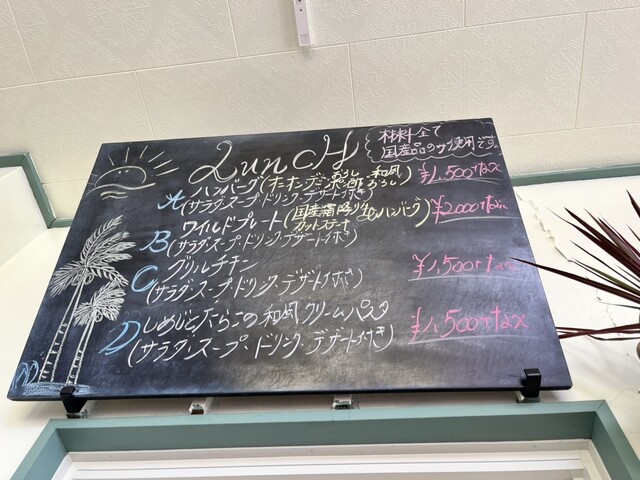 Lunch
材料全て
国産品のみ使用です。
A ハンバーグ(オニオン・デミ・おろし 和風おろし) ¥1,500+tax
(サラダ・スープ・ドリンク・デザート付き)
B ワイルドプレート(国産霜降り カットステーキ ハンバーグ) ¥2,000+tax
(サラダ・スープ・ドリンク・デザート付き)
C グリルチキン ¥1,500+tax
(サラダ・スープ・ドリンク・デザート付き)
D しめじとたらこの和風クリームパスタ ¥1,500+tax
(サラダ・スープ・ドリンク・デザート付き)